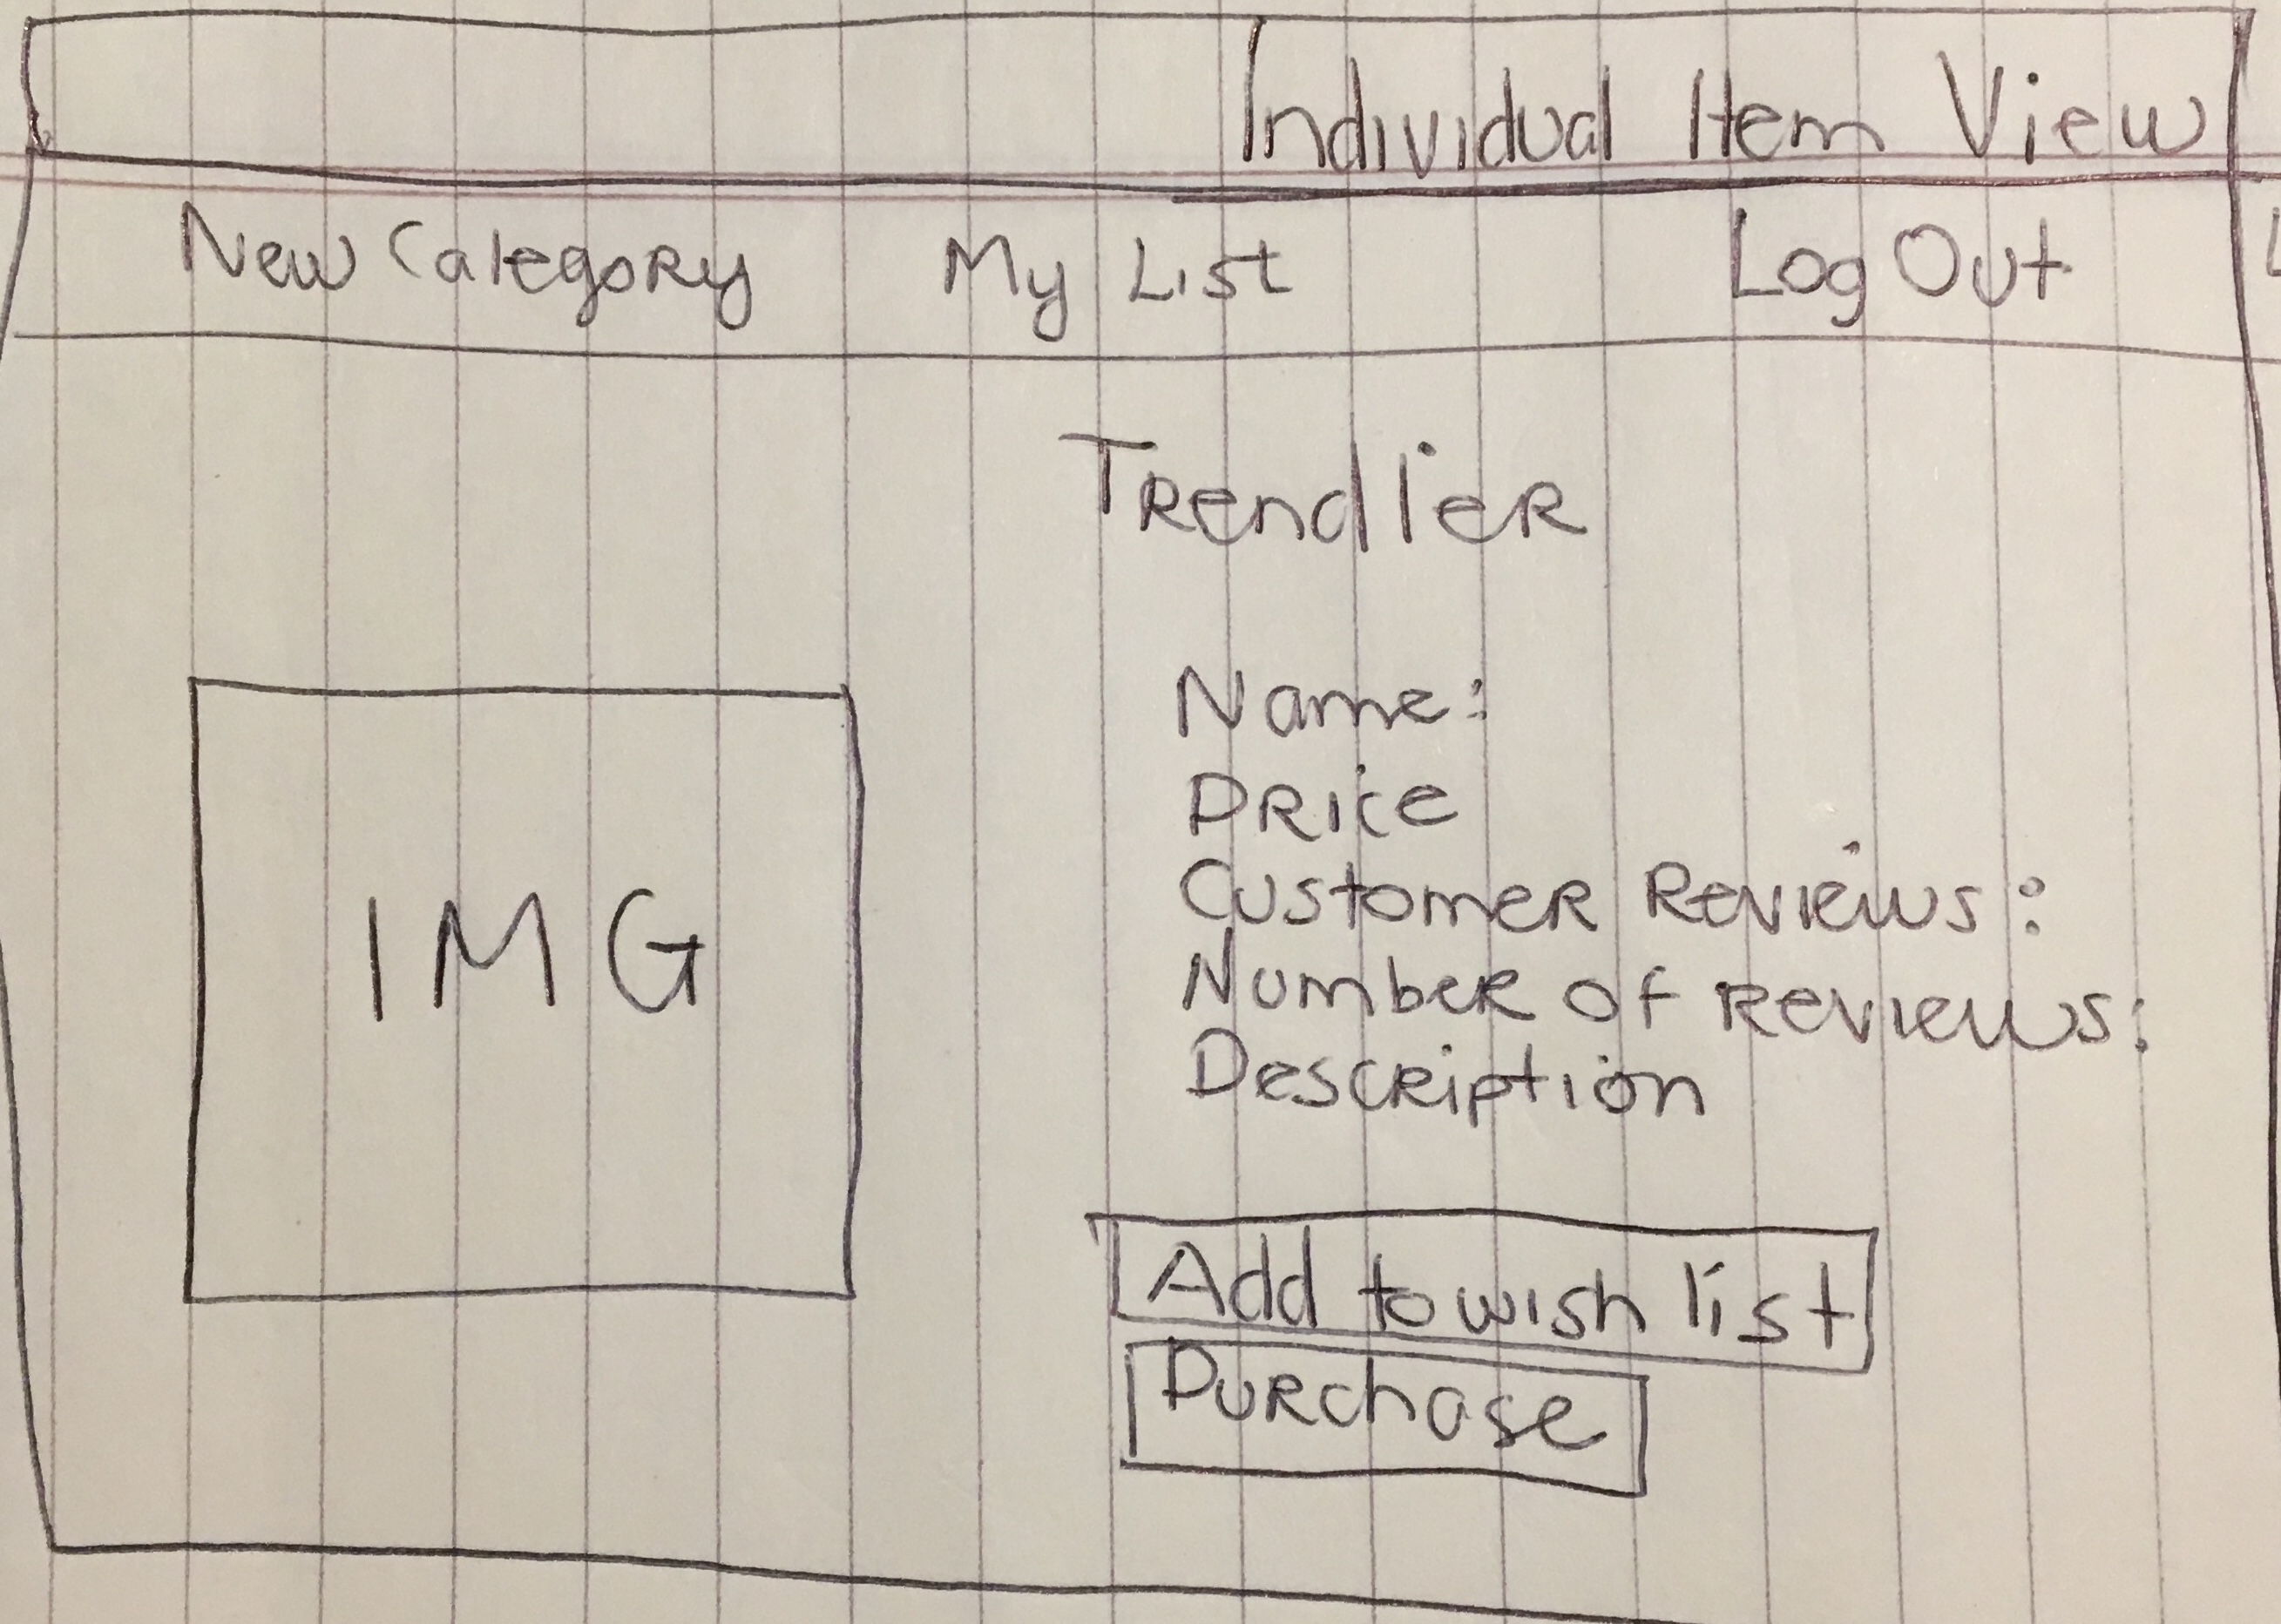 Individual Item View
New Category My List Log Out
Trendier
Name:
Price
Customer Reviews:
Number of reviews:
Description
IMG
Add to wish list
Purchase